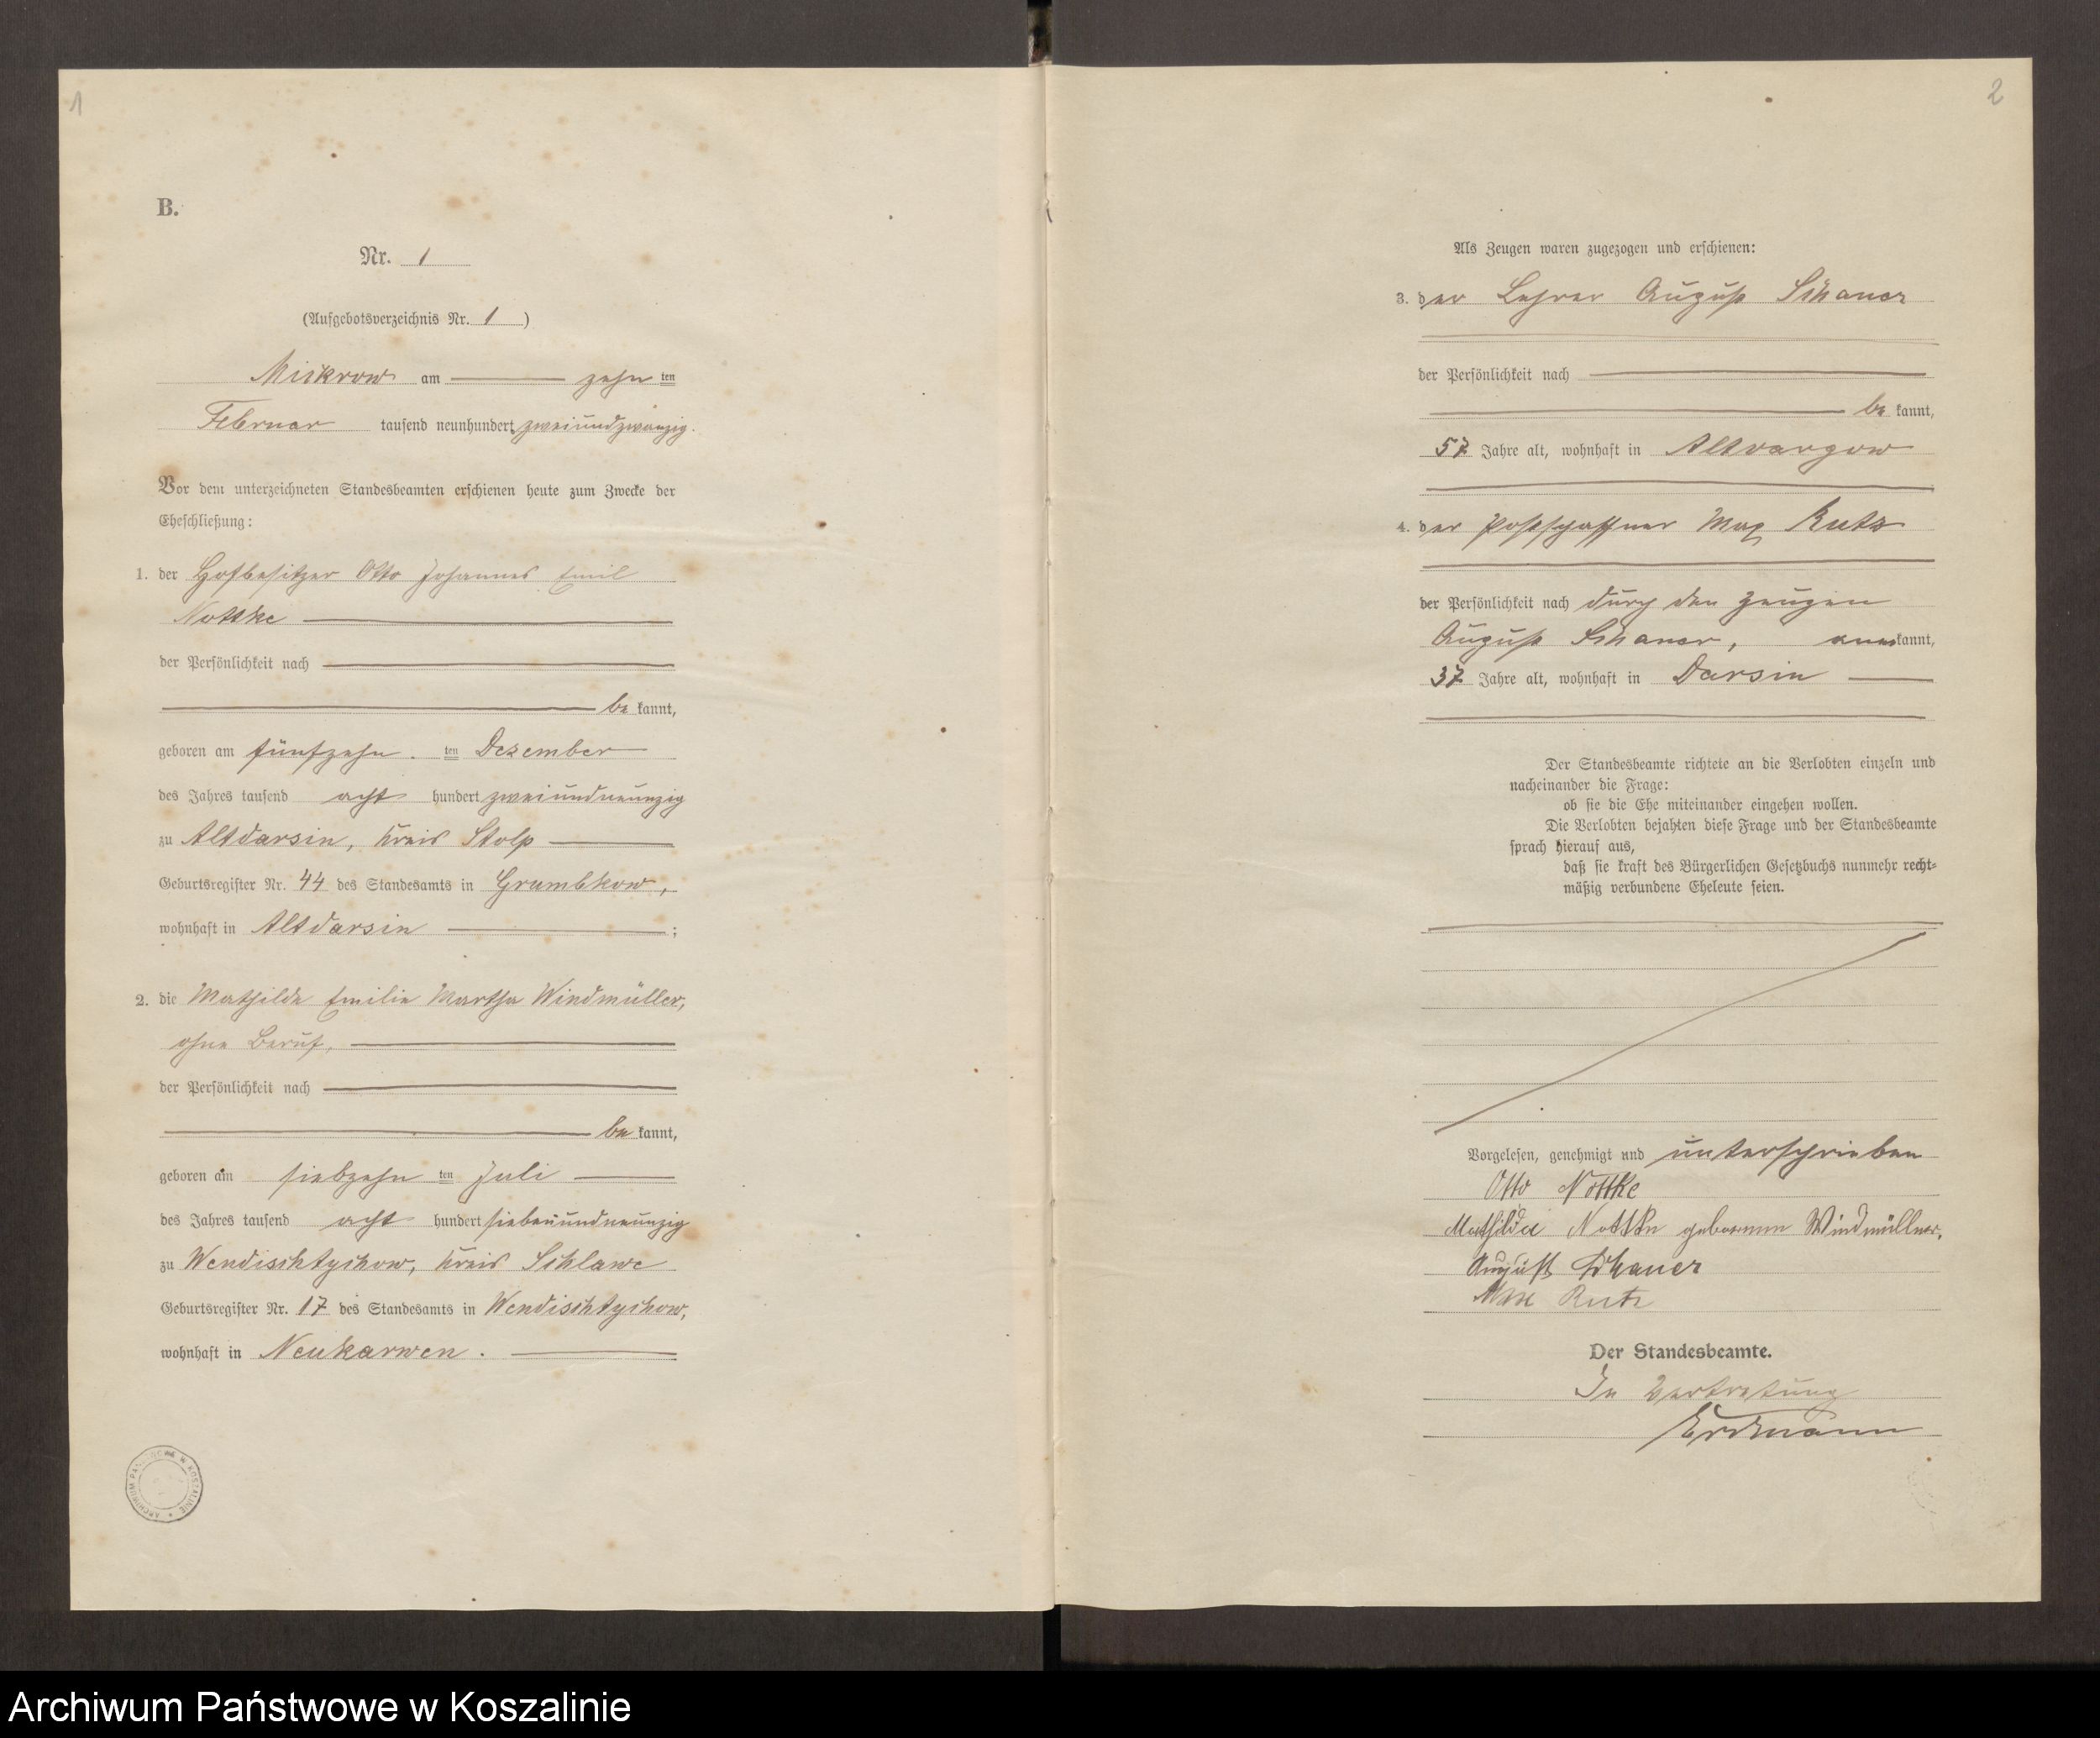 1
B.
Nr. 1
(Aufgebotsverzeichnis Nr. 1 )
Mickrow am zehn ten
Februar tausend neunhundert zweiundzwanzig.
Vor dem unterzeichneten Standesbeamten erschienen heute zum Zwecke der
Eheschließung:
1. der Hofbesitzer Otto Johannes Emil
Nottke
der Persönlichkeit nach
be kannt,
geboren am fünfzehn. ten Dezember
des Jahres tausend acht hundert zweiundneunzig
zu Altdarsin, Kreis Stolp
Geburtsregister Nr. 44 des Standesamts in Grumbkow,
wohnhaft in Altdarsin ;
2. die Mathilde Emilie Martha Windmüller,
ohne Beruf,
der Persönlichkeit nach
be kannt,
geboren am siebzehn ten Juli
des Jahres tausend acht hundert siebenundneunzig
zu Wendischtychow, Kreis Schlawe
Geburtsregister Nr. 17 des Standesamts in Wendischtychow,
wohnhaft in Neukarwen.
2
Als Zeugen waren zugezogen und erschienen:
3. der Lehrer August Schauer
der Persönlichkeit nach
be kannt,
57 Jahre alt, wohnhaft in Altvargow
4. der Postschaffner Max Rutz
der Persönlichkeit nach durch den Zeugen
August Schauer, anerkannt,
37 Jahre alt, wohnhaft in Darsin
Der Standesbeamte richtete an die Verlobten einzeln und
nacheinander die Frage:
ob sie die Ehe miteinander eingehen wollen.
Die Verlobten bejahten diese Frage und der Standesbeamte
sprach hierauf aus,
daß sie kraft des Bürgerlichen Gesetzbuchs nunmehr recht-
mäßig verbundene Eheleute seien.
Vorgelesen, genehmigt und unterschrieben
Otto Nottke
Mathilde Nottke geborenen Windmüller,
August Schauer
Max Rutz
Der Standesbeamte.
In Vertretung
Erdmann
Archiwum Państwowe w Koszalinie